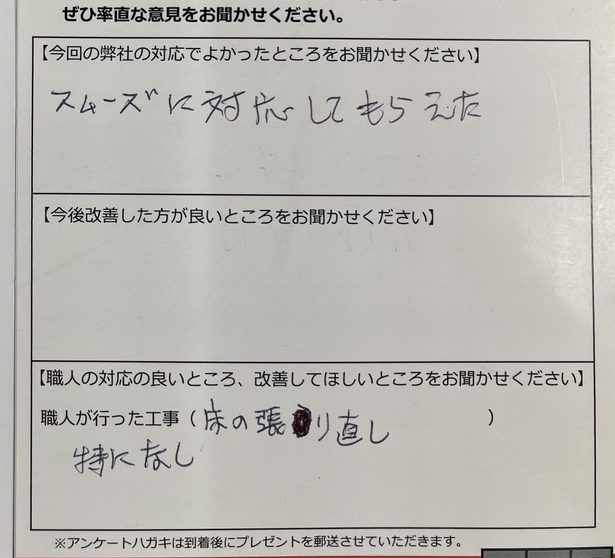 ぜひ率直な意見をお聞かせください。
【今回の弊社の対応でよかったところをお聞かせください】
スムーズに対応してもらえた
【今後改善した方が良いところをお聞かせください】
【職人の対応の良いところ、改善してほしいところをお聞かせください】
職人が行った工事（床の張り直し）
特になし
※アンケートハガキは到着後にプレゼントを郵送させていただきます。